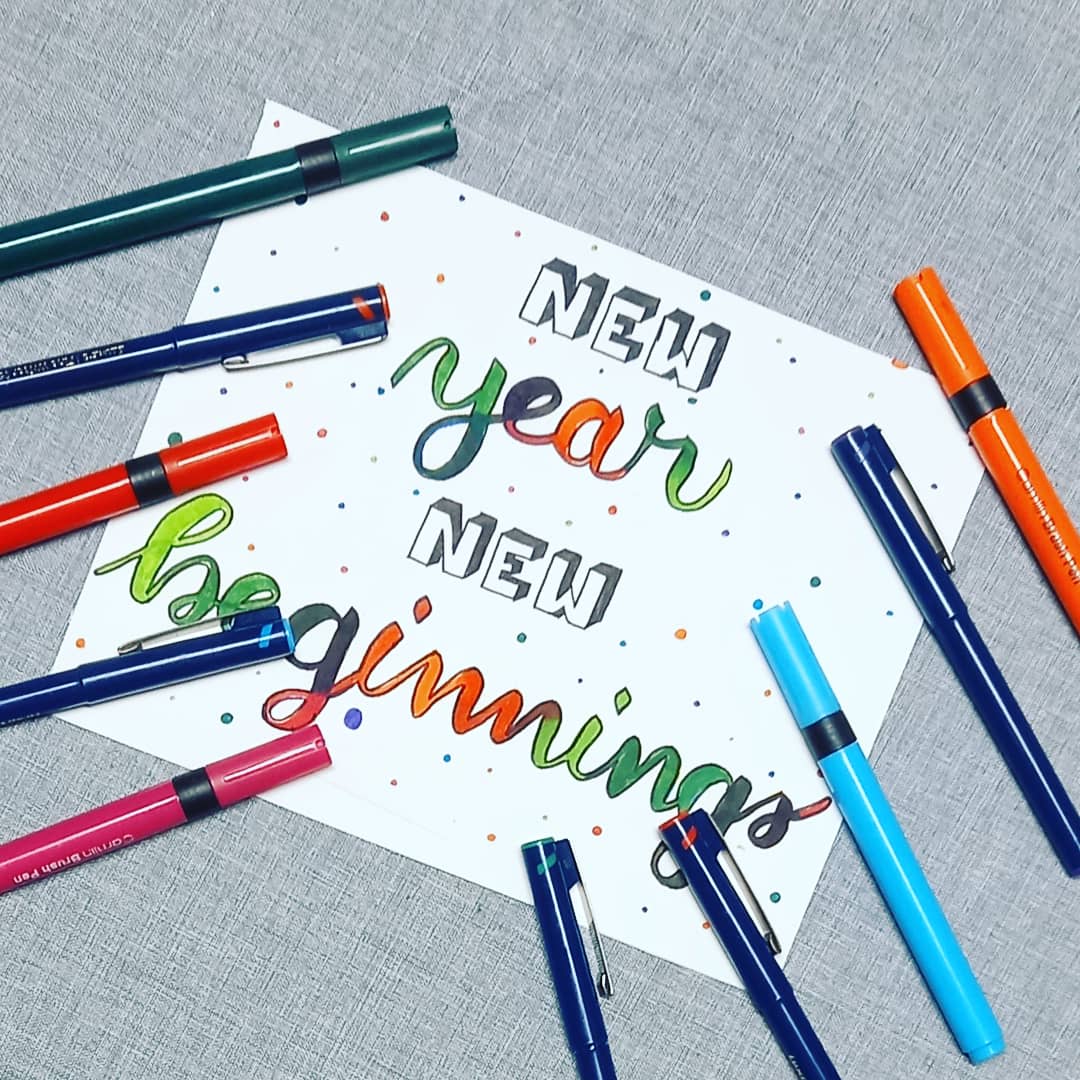 NEW
year
NEW
beginnings
Camlin Brush Pen